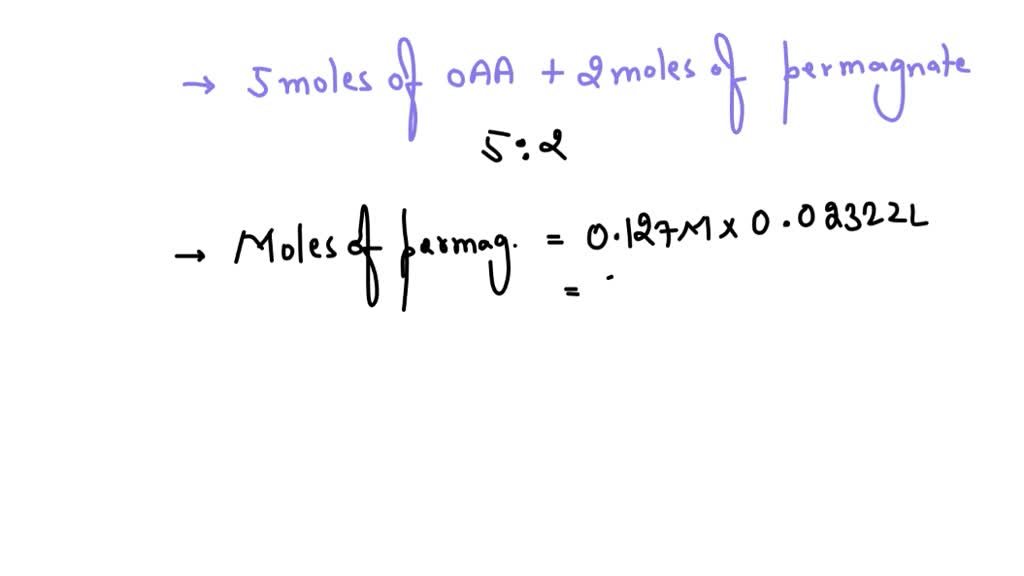 → 5 moles of OAA + 2 moles of permagnate
5:2
→ Moles of permag. = 0.127M x 0.02322L
= .